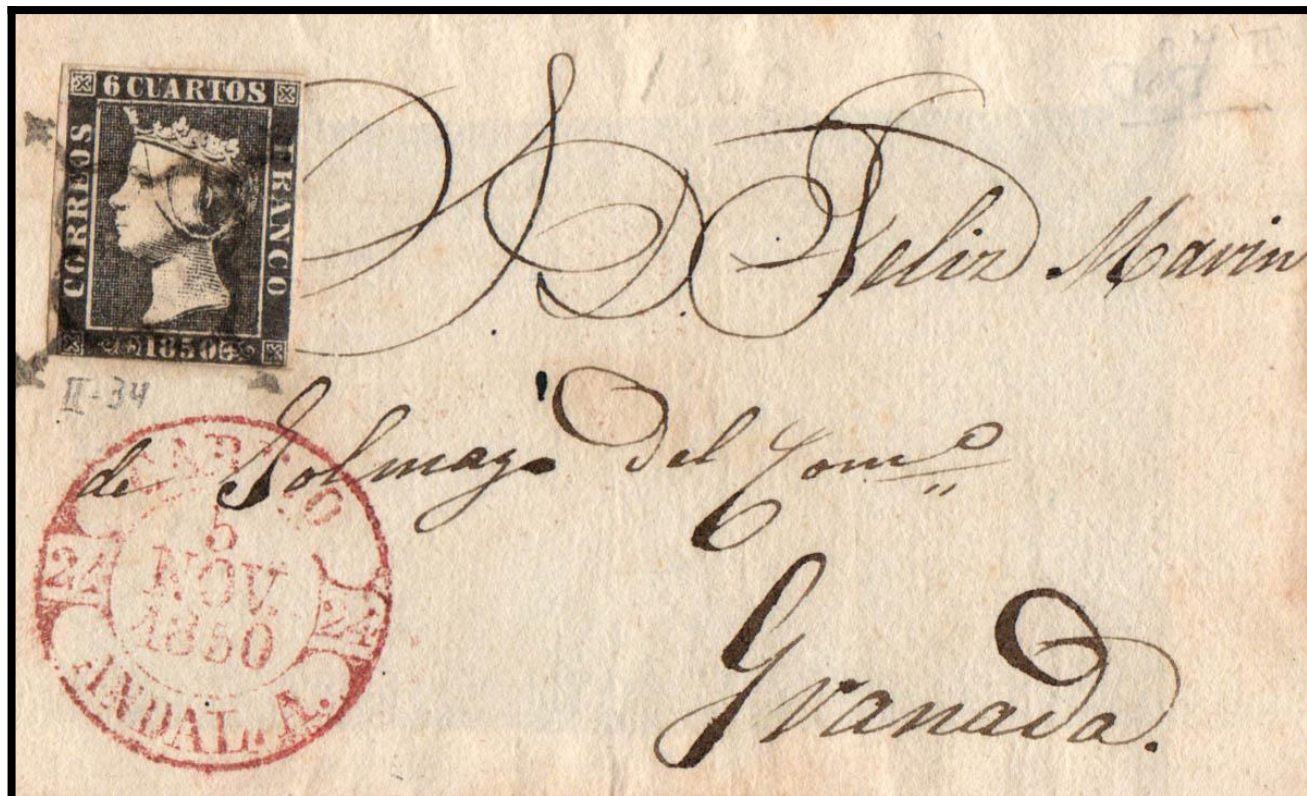 6 CUARTOS
CORREOS
FRANCO
1850
II-34
S. D. Feliz Marin
de Solmayo del Com.º
Granada.
5
NOV.
1850
24 24
ANDAL. A.